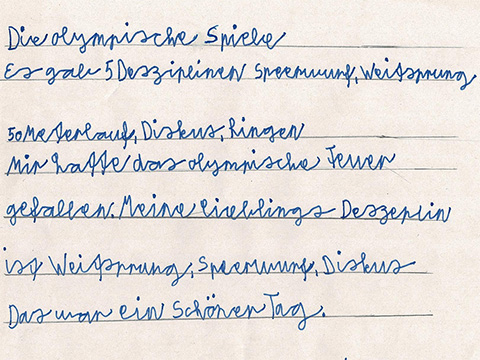 Die olympische Spiele
Es gab 5 Desziplinen Speerwurf, Weitsprung
50 Meterlauf, Diskus, Ringen
Mir hatte das olympische Feuer
gefallen. Meine lieblings Deszerlin
ist Weitsprung, Speerwurf, Diskus
Das war ein Schöner Tag.